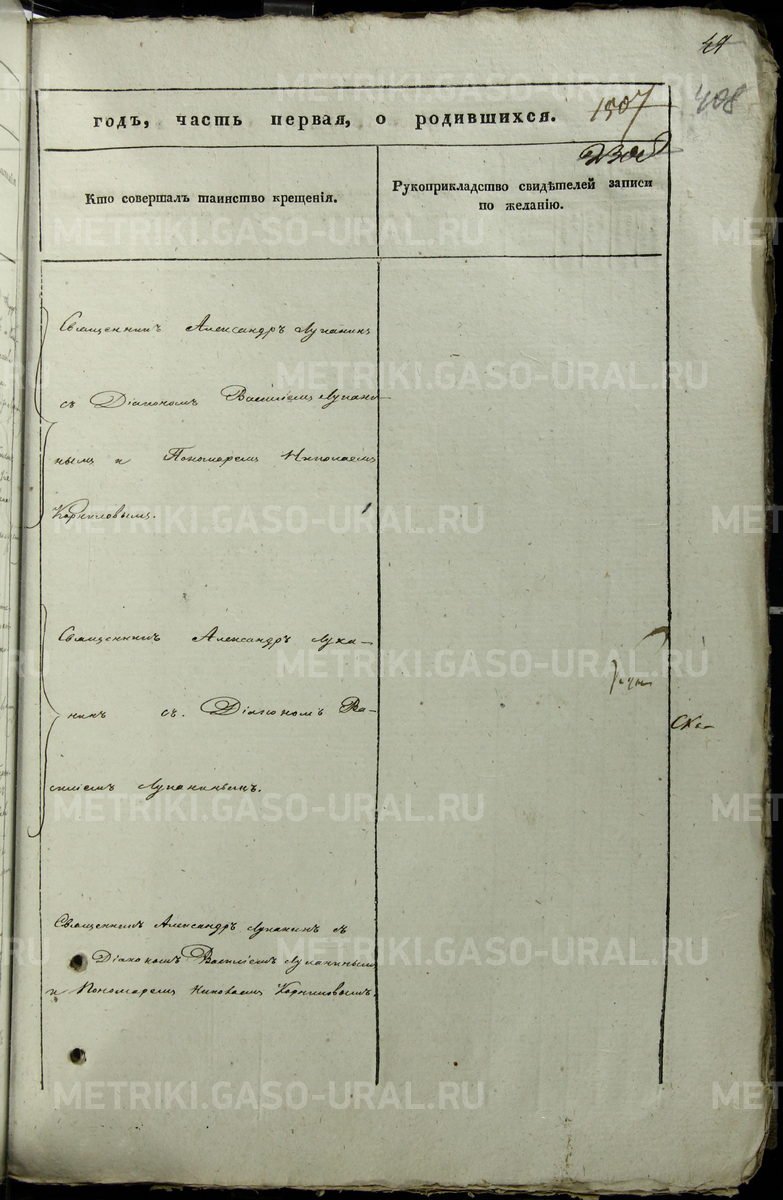 49
408
годъ, часть первая, о родившихся.
1507
Кто совершалъ таинство крещенія.
Рукоприкладство свидѣтелей записи
по желанію.
Священникъ Александръ Луканинъ
съ Діакономъ Василіемъ Лукани-
нымъ и Пономаремъ Николаемъ
Корниловымъ.
Священникъ Александръ Лука-
нинъ съ. Діакономъ Ва-
силіемъ Луканинымъ.
Ска-
Священникъ Александръ Луканинъ съ
Діакономъ Василіемъ Луканинымъ
и Пономаремъ Николаемъ Корниловымъ.
METRIKI.GASO-URAL.RU